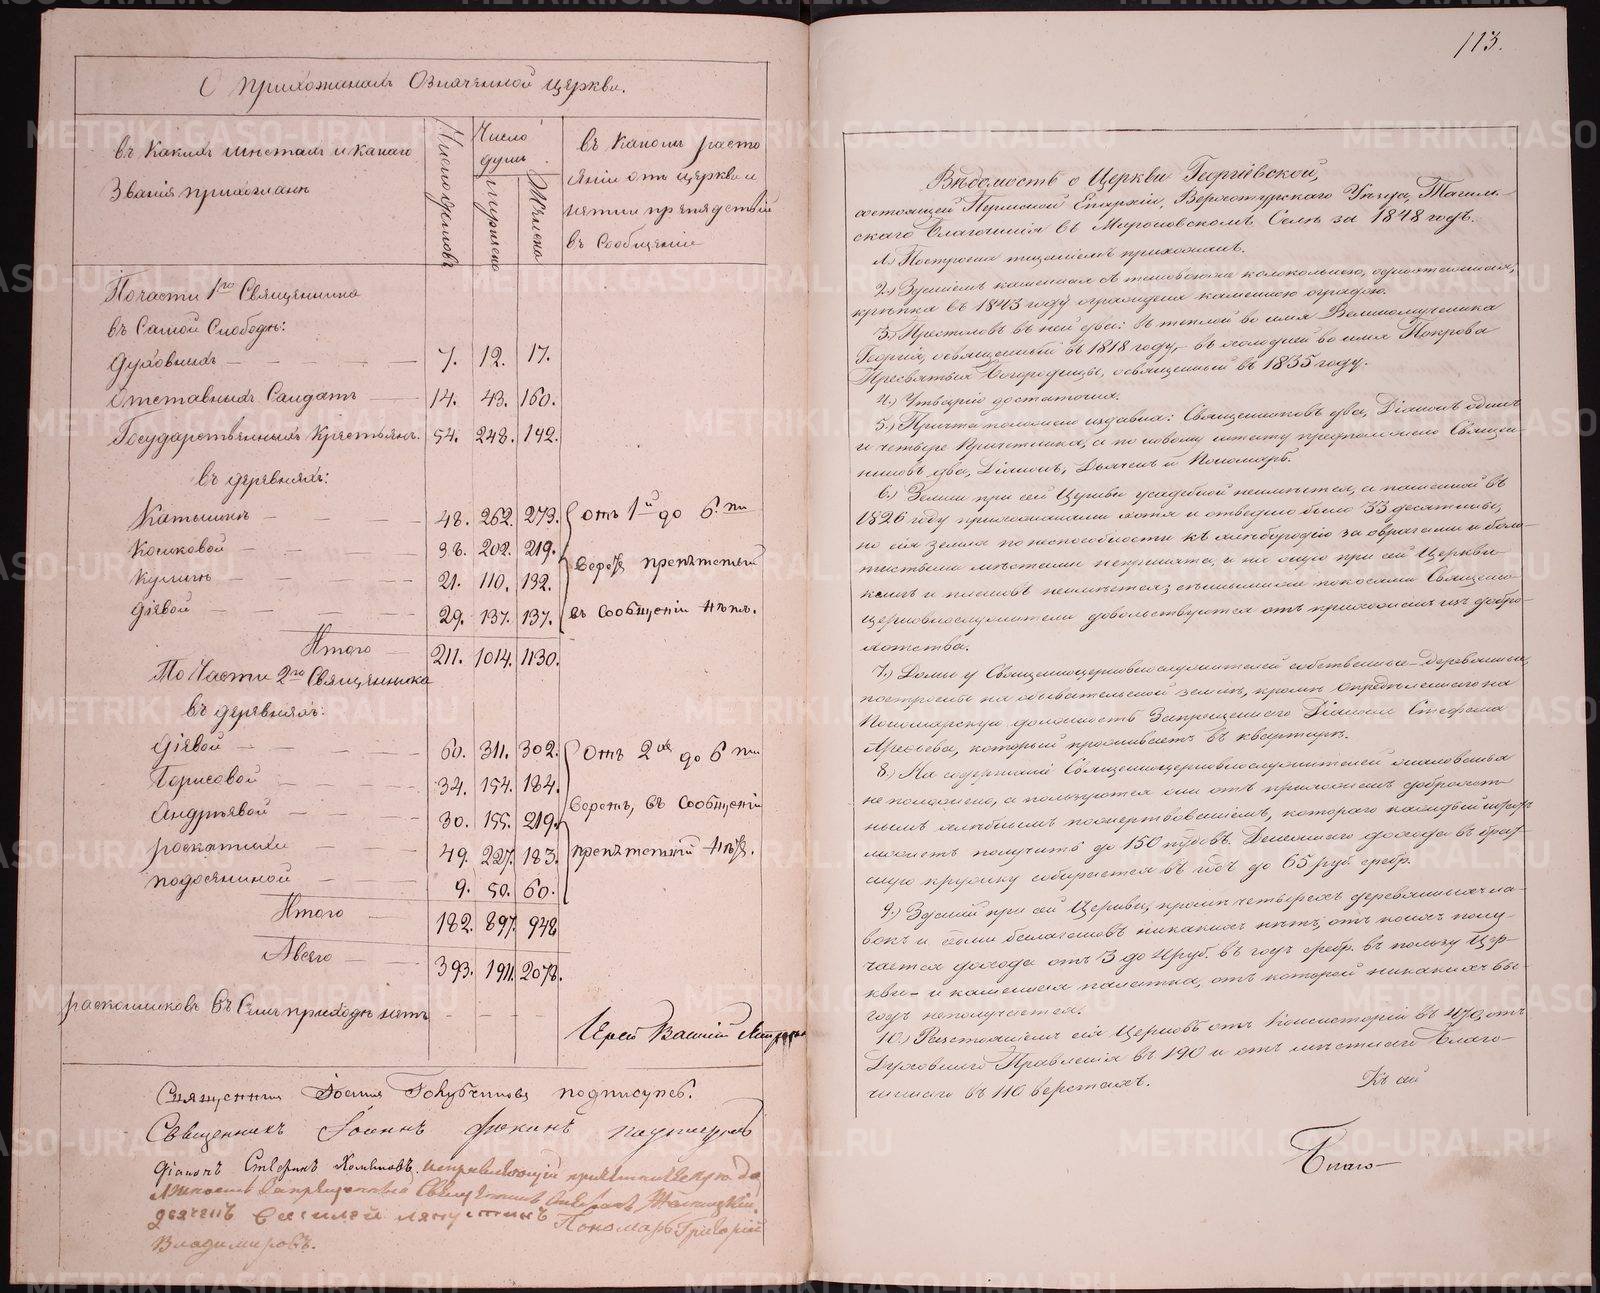 О прихожанахъ Означенной церкви.
въ Какихъ мѣстахъ и какаго
Званія прихожане
Число дворовъ
Число
душъ
Мужеска
Женска
въ Какомъ расто
яніи отъ церкви и
нѣтъ ли препядствій
въ Сообщеніи
По части 1го Священника
въ Самой Слободѣ:
Духовныхъ 7. 12. 17.
Отставныхъ Салдатъ 14. 43. 160.
Государственныхъ Крестьянъ 54. 248. 192.
въ деревняхъ:
48. 262. 273. отъ 1й до 6.ти
Косиковой 38. 202. 219.
21. 110. 132. верстъ препятствій
29. 137. 137. въ сообщеніи нѣтъ.
Итого 211. 1014. 1130.
По Части 2го Священника
въ деревняхъ:
60. 311. 302. Отъ 2хъ до 6ти
Борисовой 34. 154. 184.
Андрѣевой 30. 155. 219. верстъ, въ сообщеніи
49. 227. 183. препятствій нѣтъ.
9. 50. 60.
Итого 182. 897. 948
А всего 393. 1911. 2078.
раскольниковъ въ Семъ приходѣ нѣтъ
Іерей Василій
Священникъ Іоаннъ Голубчиковъ подписуюсь.
Священникъ Іоаннъ Фокинъ подписуюсь
Діаконъ
Священникъ
Пономарь Григорій
Владимировъ.
113.
Вѣдомость о Церкви Георгіевской,
состоящей Пермской Епархіи, Верхотурскаго Уѣзда, Тагиль-
скаго благочинія въ Мироновскомъ Селѣ за 1848 годъ.
1.) Построена тщаніемъ прихожанъ.
2.) Зданіемъ каменная съ таковоюже колокольнею, одноэтажная,
крѣпка въ 1843 году ограждена каменною оградою.
3.) Престоловъ въ ней два: въ теплой во имя Великомученика
Георгія, освященный въ 1818 году, въ холодной во имя Покрова
Пресвятыя Богородицы, освященный въ 1835 году.
4.) Утварію достаточна.
5.) Причта положено издавна: Священниковъ два, Діаконъ одинъ
и четверо Причетника, а по новому штату предположено Священ-
никовъ два, Діаконъ, Дьячекъ и Пономарь.
6.) Земли при сей Церкви усадебной неимѣется, а пашенной въ
1826 году прихожанами хотя и отведено было 33 десятины,
но сія земля по неспособности къ хлѣбородію за оврагами и боло-
тистыми мѣстами непринята, и на оную при сей Церкви
книгъ и плановъ неимѣется; сѣнными покосами Священно-
церковнослужители довольствуются отъ прихожанъ изъ добро-
хотства.
7.) Домы у Священноцерковнослужителей собственные деревянные,
построены на обывательской землѣ, кромѣ опредѣленнаго на
Пономарскую должность Запрещеннаго Діакона Стефана
Арефьева, который проживаетъ въ квартирѣ.
8.) На содержаніе Священноцерковнослужителей жалованья
не положено, а пользуются они отъ прихожанъ доброхот-
нымъ хлѣбнымъ пожертвованіемъ, котораго каждый
можетъ получить до 150 пудовъ. Денежнаго дохода въ брат-
скую кружку собирается въ годъ до 65 руб. сребр.
9.) Зданій при сей Церкви, кромѣ четырехъ деревянныхъ ла-
вокъ и никакихъ нѣтъ, отъ коихъ полу-
чается дохода отъ 3 до 4 руб. въ годъ сребр. въ пользу Цер-
кви и каменная палатка, отъ которой никакихъ вы-
годъ неполучается.
10.) Разстояніемъ сія Церковь отъ Консисторіи въ 470, отъ
Духовнаго Правленія въ 190 и отъ мѣстнаго Благо-
чиннаго въ 110 верстахъ.
Къ сей
Благо-